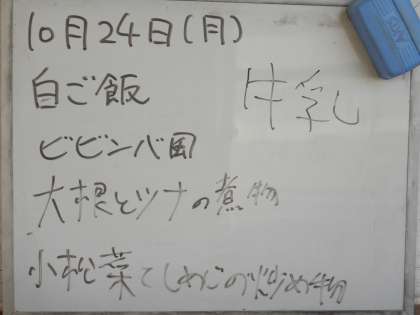 10月24日(月)
白ご飯
牛乳
ビビンバ風
大根とツナの煮物
小松菜としめじの炒め物